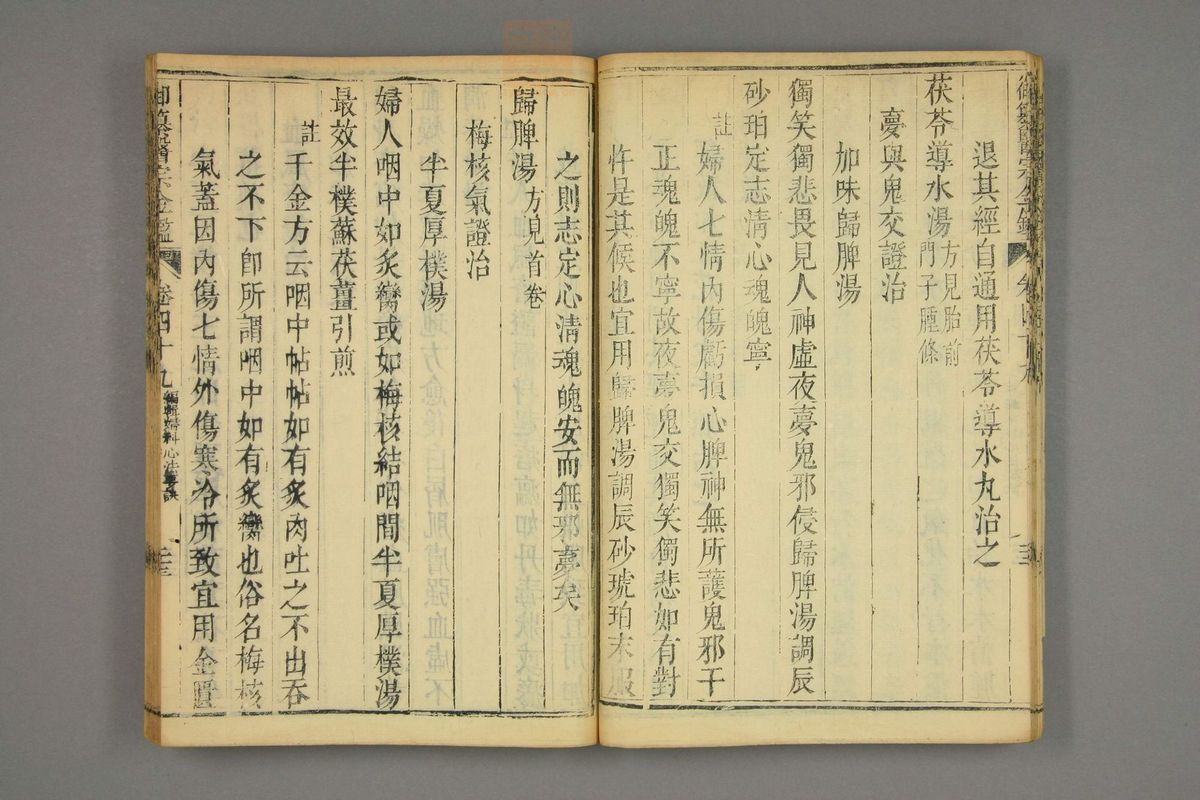 退其經自通用茯苓導水丸治之
茯苓導水湯方見胎前門子腫條
夢與鬼交證治
加味歸脾湯
獨笑獨悲畏見人神虛夜夢鬼邪侵歸脾湯調辰
砂珀定志清心魂魄寧
註
婦人七情內傷虧損心脾神無所護鬼邪干
正魂魄不寧故夜夢鬼交獨笑獨悲如有對
忤是其候也宜用歸脾湯調辰砂琥珀末服
之則志定心清魂魄安而無邪夢矣
歸脾湯方見首卷
梅核氣證治
半夏厚樸湯
婦人咽中如炙臠或如梅核結咽間半夏厚樸湯
最效半樸蘇茯薑引煎
註
千金方云咽中帖帖如有炙肉吐之不出吞
之不下卽所謂咽中如有炙臠也俗名梅核
氣蓋因內傷七情外傷寒冷所致宜用金匱
御纂醫宗金鑑 卷四十九 編輯婦科心法要訣